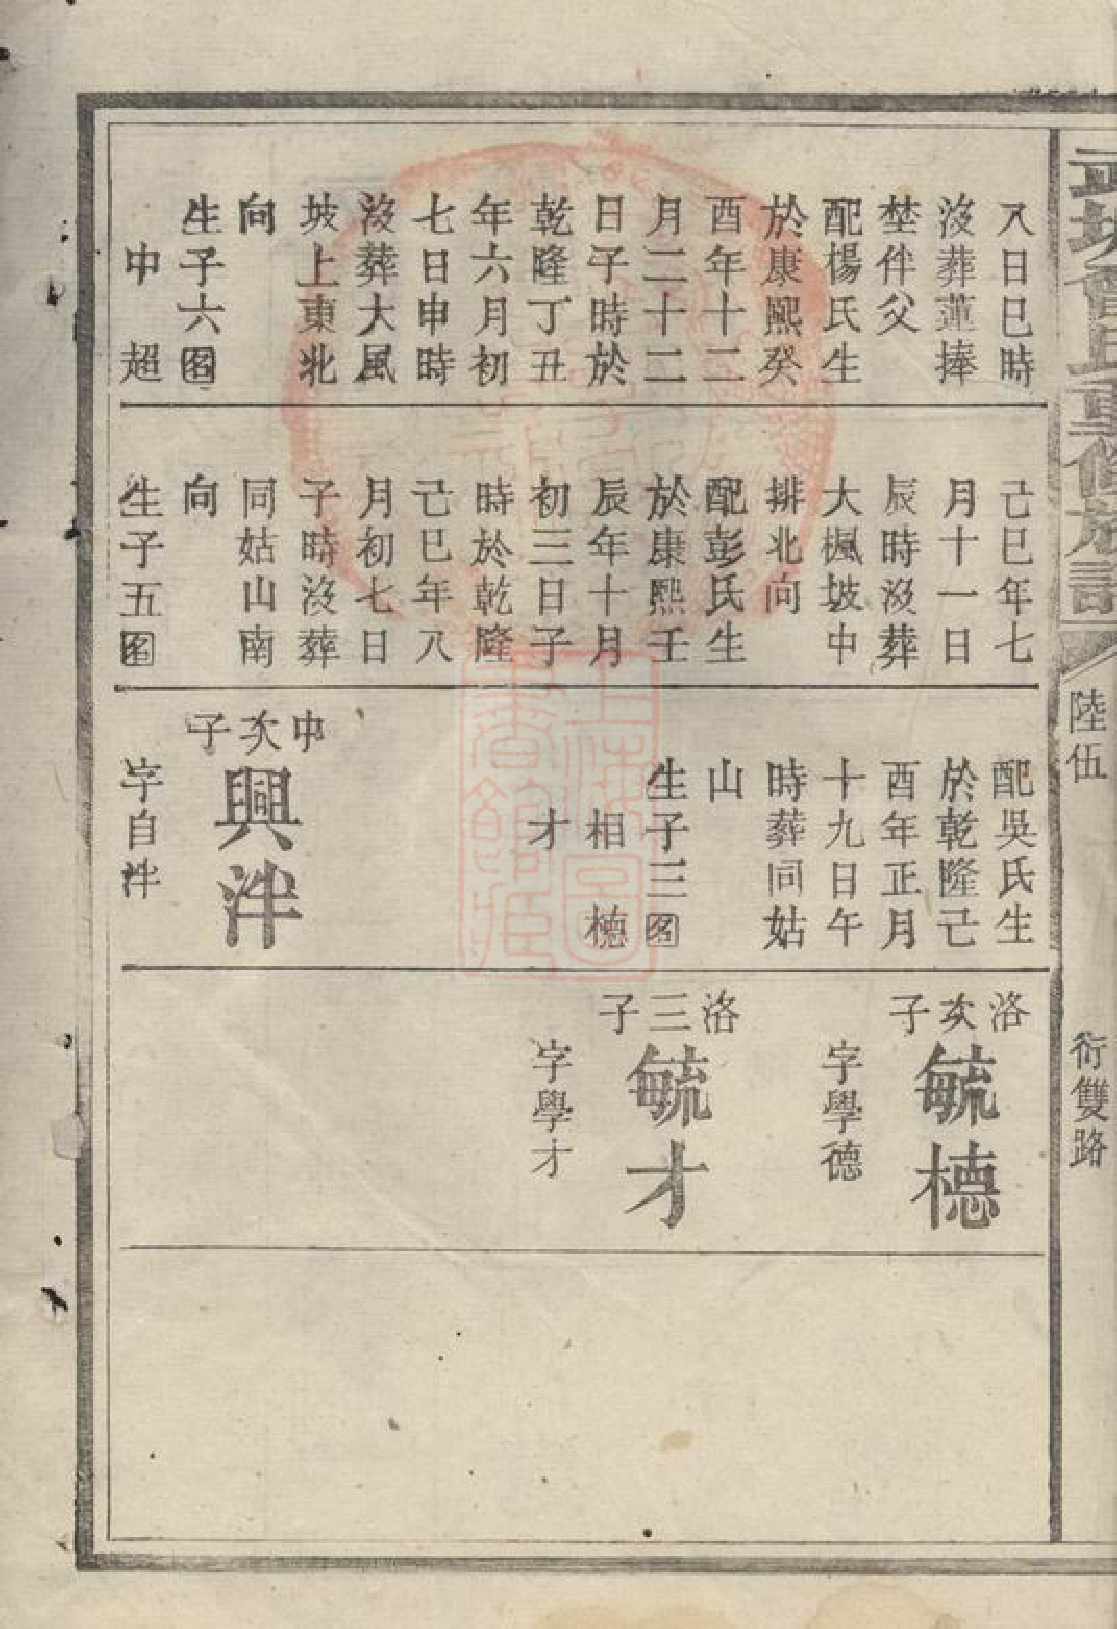 陸伍
衍雙路
入日巳時
沒葬蓮捧
埜伴父
配楊氏生
於康熙癸
酉年十二
月二十二
日子時於
乾隆丁丑
年六月初
七日申時
沒葬大風
坡上東北
向
生子六图
中超
己巳年七
月十一日
辰時沒葬
大楓坡中
排北向
配彭氏生
於康熙壬
辰年十月
初三日子
時於乾隆
己巳年八
月初七日
子時沒葬
同姑山南
向
生子五图
配吳氏生
於乾隆己
酉年正月
十九日午
時葬同姑
山
生子三图
相 橞
才
中次子
興泮
字自泮
洛次子
毓橞
字學德
洛三子
毓才
字學才